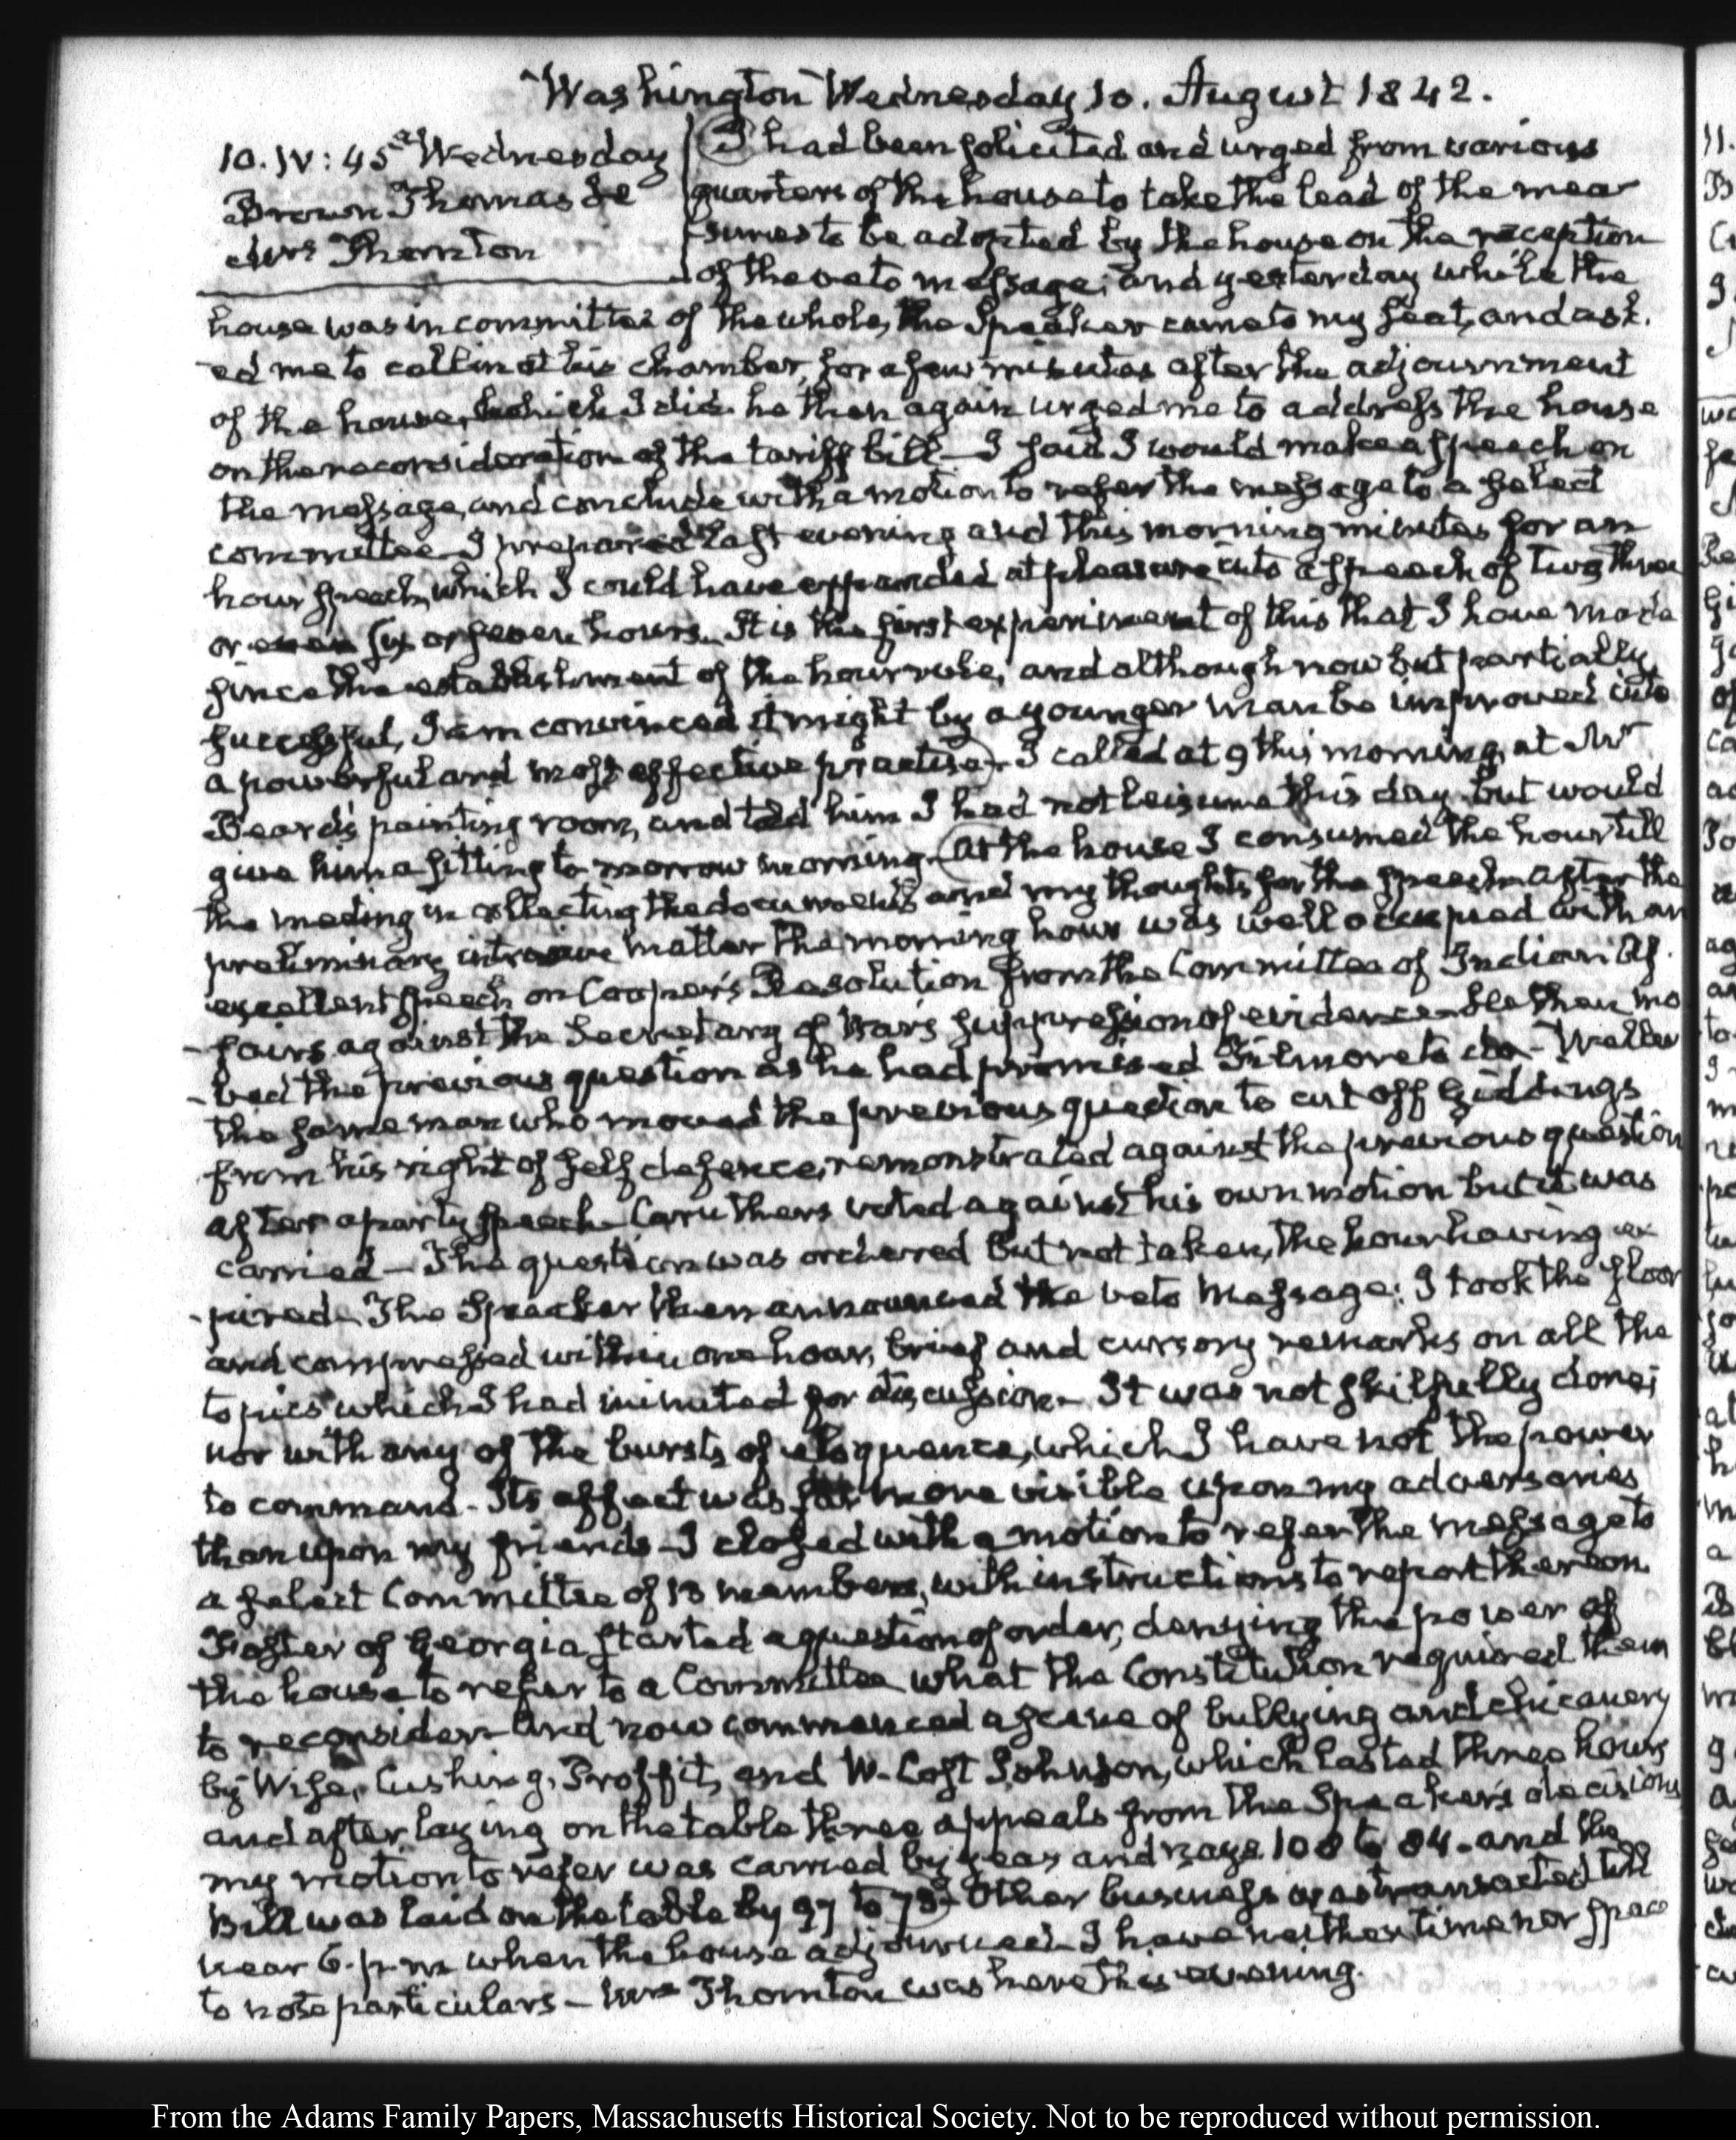 Washington Wednesday 10. August 1842.
10. IV: 45 Wednesday
Brown Thomas
Mrs Thornton
I had been solicited and urged from various
quarters of the house to take the lead of the mea
sures to be adopted by the house on the reception
of the veto message; and yesterday while the
house was in committee of the whole, the Speaker came to my seat, and ask-
ed me to call in at his chamber, for a few minutes after the adjournment
of the house, which I did. he then again urged me to address the house
on the reconsideration of the tariff bill—I said I would make a speech on
the message, and conclude with a motion to refer the message to a select
committee—I prepared last evening and this morning minutes for an
hour speech, which I could have expanded at pleasure into a speech of two, three
or even six or seven hours. It is the first experiment of this that I have made
since the establishment of the hour rule, and although now but partially
successful, I am convinced it might by a younger man be improved into
a powerful and most effective practise—I called at 9 this morning, at Mr
Beard's painting room, and told him I had not leisure this day but would
give him a sitting to-morrow morning—At the house I consumed the hour till
the meeting in collecting the documents and my thoughts for the speech. After the
preliminary intrusive matter the morning hour was well occupied with an
excellent speech on Cooper's Resolution from the Committee of Indian Af-
-fairs against the Secretary of War's suppression of evidence—He then mo
-ved the previous question as he had promised Filmore to do—Weller
the same man who moved the previous question to cut off Giddings
from his right of self defence, remonstrated against the previous question
after a party speech—Caruthers voted against his own motion but it was
carried—The question was ordered but not taken, the hour having ex
-pired. The Speaker then announced the veto Message: I took the floor
and compressed within one hour, brief and cursory remarks on all the
topics which I had minuted for discussion—It was not skilfully done;
nor with any of the bursts of eloquence, which I have not the power
to command—Its effect was far more visible upon my adversaries
than upon my friends—I closed with a motion to refer the message to
a select Committee of 13 members, with instructions to report thereon.
Foster of Georgia started a question of order, denying the power of
the house to refer to a Committee what the Constitution required them
to reconsider—And now commenced a scene of bullying and chicanery
by Wise, Cushing, Proffit, and W. Cost Johnson, which lasted three hours
and after laying on the table three appeals from the Speaker's decisions
my motion to refer was carried by yeas and nays 108 to 84—and the
Bill was laid on the table by 97 to 73—Other business was transacted till
near 6. p.m when the house adjourned—I have neither time nor space
to note particulars—Mrs Thornton was here this evening.
From the Adams Family Papers, Massachusetts Historical Society. Not to be reproduced without permission.